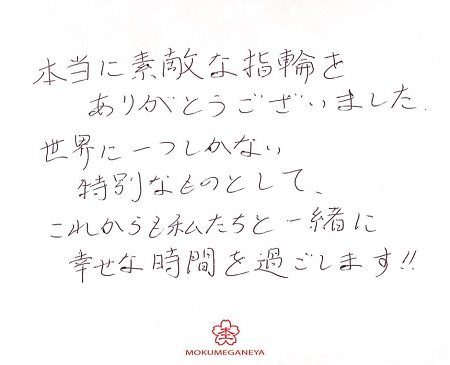 本当に素敵な指輪を
ありがとうございました.
世界に一つしかない
特別なものとして、
これからも私たちと一緒に
幸せな時間を過ごします!!
MOKUMEGANEYA